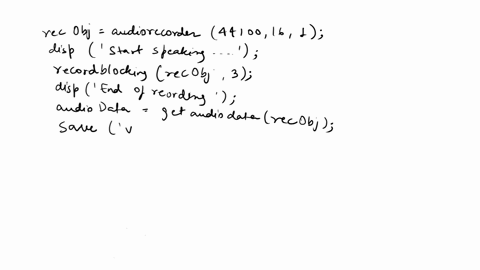 rec Obj = audiorecorder (44100, 16, 1);
disp ('Start speaking ....');
recordblocking (recObj, 3);
disp ('End of recording ');
audio Data = get audiodata (recObj);
save ('v